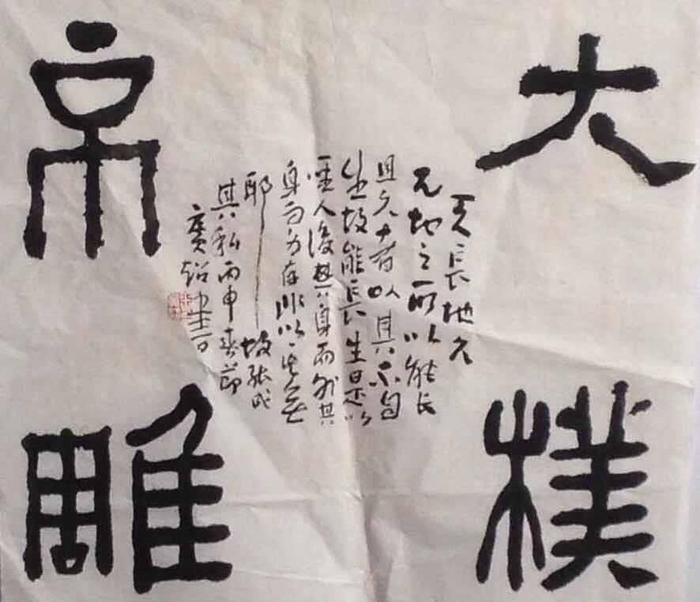 大樸
不雕
天長地久
天地之所以能長
且久者以其不自
生故能長生是以
聖人後其身而外其
身而身存非以其無
耶故能成
其私丙申春節
廣書